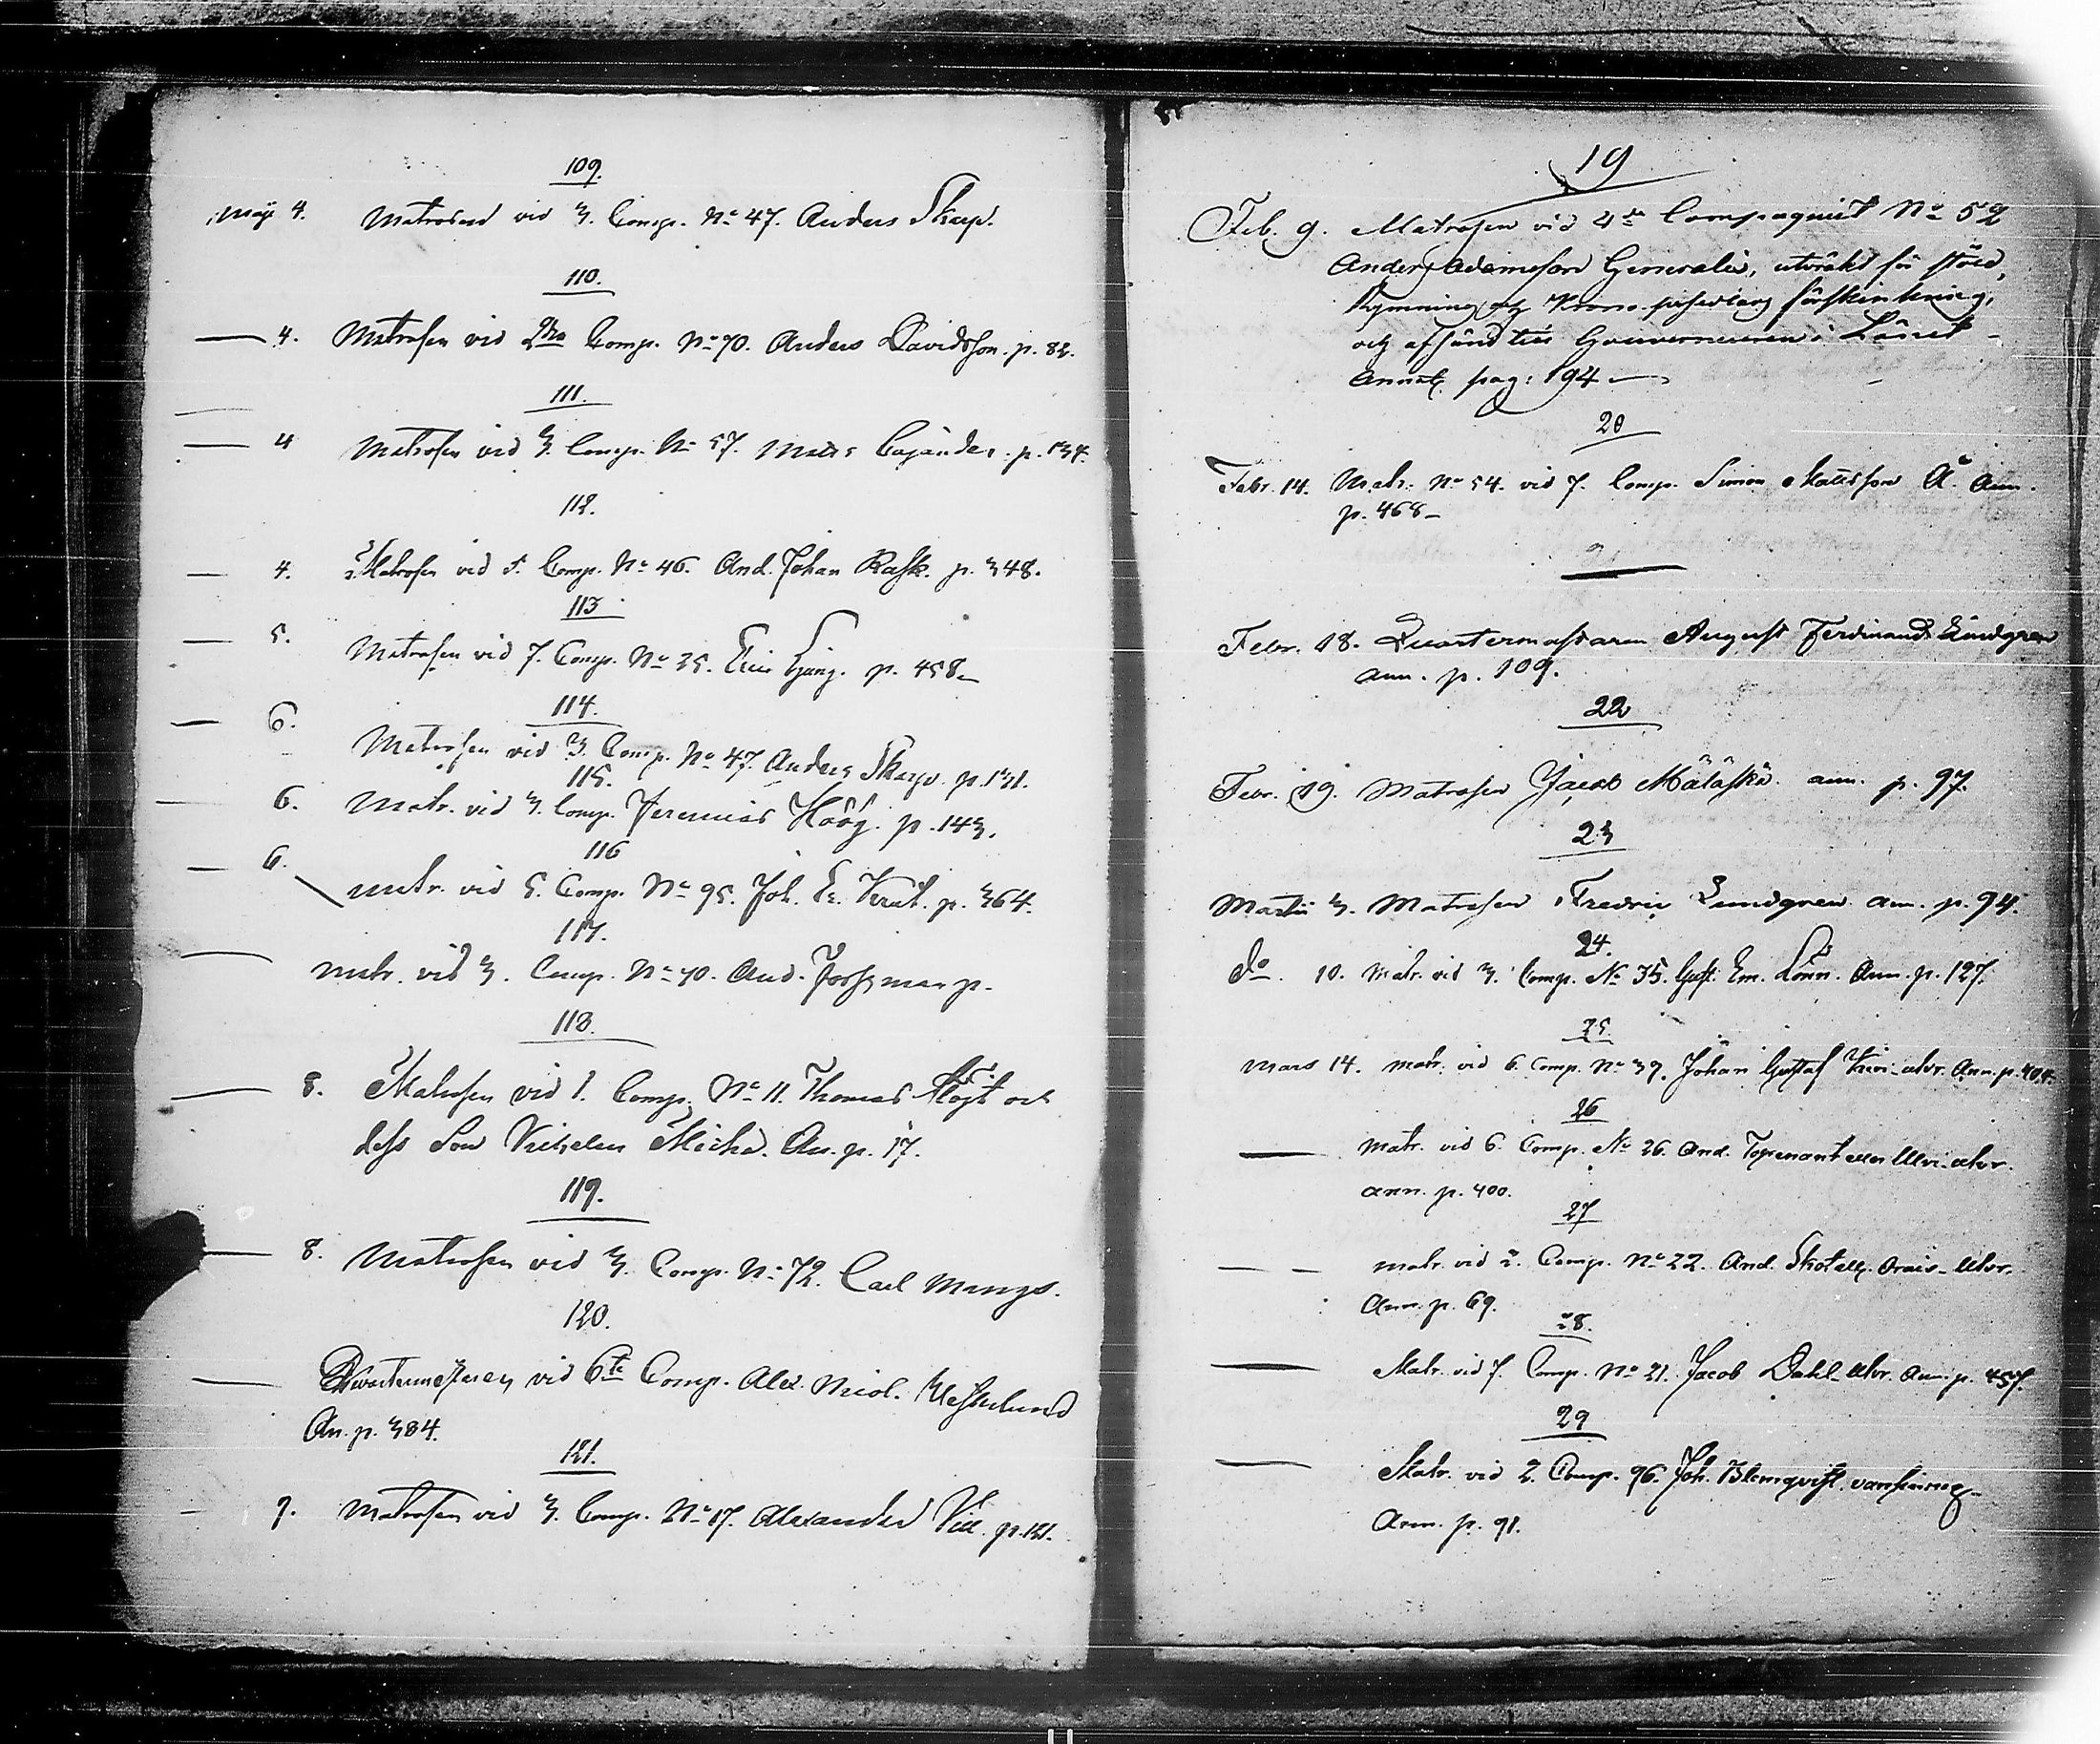 109.
Maji 4. Matrosen vid 3. Comp. No 47. Anders Skarp.
110.
— 4. Matrosen vid 2dra Comp. No 70. Anders Davidsson. p. 82.
111.
— 4 Matrosen vid 3. Comp. No 57. Matts Cajander. p. 134.
112.
— 4. Matrosen vid 5. Comp. No 46. And. Johan Rask. p. 348.
113
— 5. Matrosen vid 7. Comp. No 25. Eric Ljung. p. 458
114.
— 6. Matrosen vid 3. Comp. No 47. Anders Skarp. p. 131.
115.
— 6. Matr. vid 3. Comp. Jeremias Höög. p. 143.
116
— 6. matr. vid 5. Comp. No 95. Joh. Er. p. 364.
117.
— matr. vid 3. Comp. No 70. And. Forssman p.
118.
— 8. Matrosen vid 1. Comp. No 11. Thomas och
dess Son Vilhelm Miche. An. p. 17.
119.
— 8. Matrosen vid 3. Comp. No 72. Carl Mangs.
120.
— Qvartermästaren vid 6te Comp. Alex. Nicol. Westerlund
An. p. 384.
121.
— 9. Matrosen vid 3. Comp. No 17. Alexander Vill. p. 121.
19
Feb. 9. Matrosen vid 4de Compagniet No 52
Anders Adamsson General, utvräkt för stöld,
Rymning och förskinkning,
och afsänd till Gouverneuren i Länet
Annot. pag: 194
20
Febr. 14. Matr. No 54. vid 7. Comp. Simon Mattsson Å. Ann.
p. 468
Febr. 18. Quartermastaren August Ferdinand Lindgren
ann. p. 109.
22
Febr. 19. Matrosen Jacob Mälaskä ann. p. 97.
23
Martii 3. Matrosen Fredric Lundgren ann. p. 94.
24.
do. 10. Matr. vid 3. Comp. No 35. Gust. Em. Lönn. Ann. p. 127.
25
Mars 14. matr. vid 6. Comp. No 39. Johan Gustaf Kivi utvr. Ann. p. 404.
26
— Matr. vid 6. Comp. No 26. And. Topenant eller Ulvi utvr.
ann. p. 400.
27
— — matr. vid 2. Comp. No 22. And. Skot ell. Orais utvr.
Ann. p. 69.
28.
— Matr. vid 7. Comp. No 21. Jacob Dahl utvr. Ann. p. 457.
29
— Matr. vid 2. Comp. 96. Joh. Blomqvist.
Ann. p. 91.